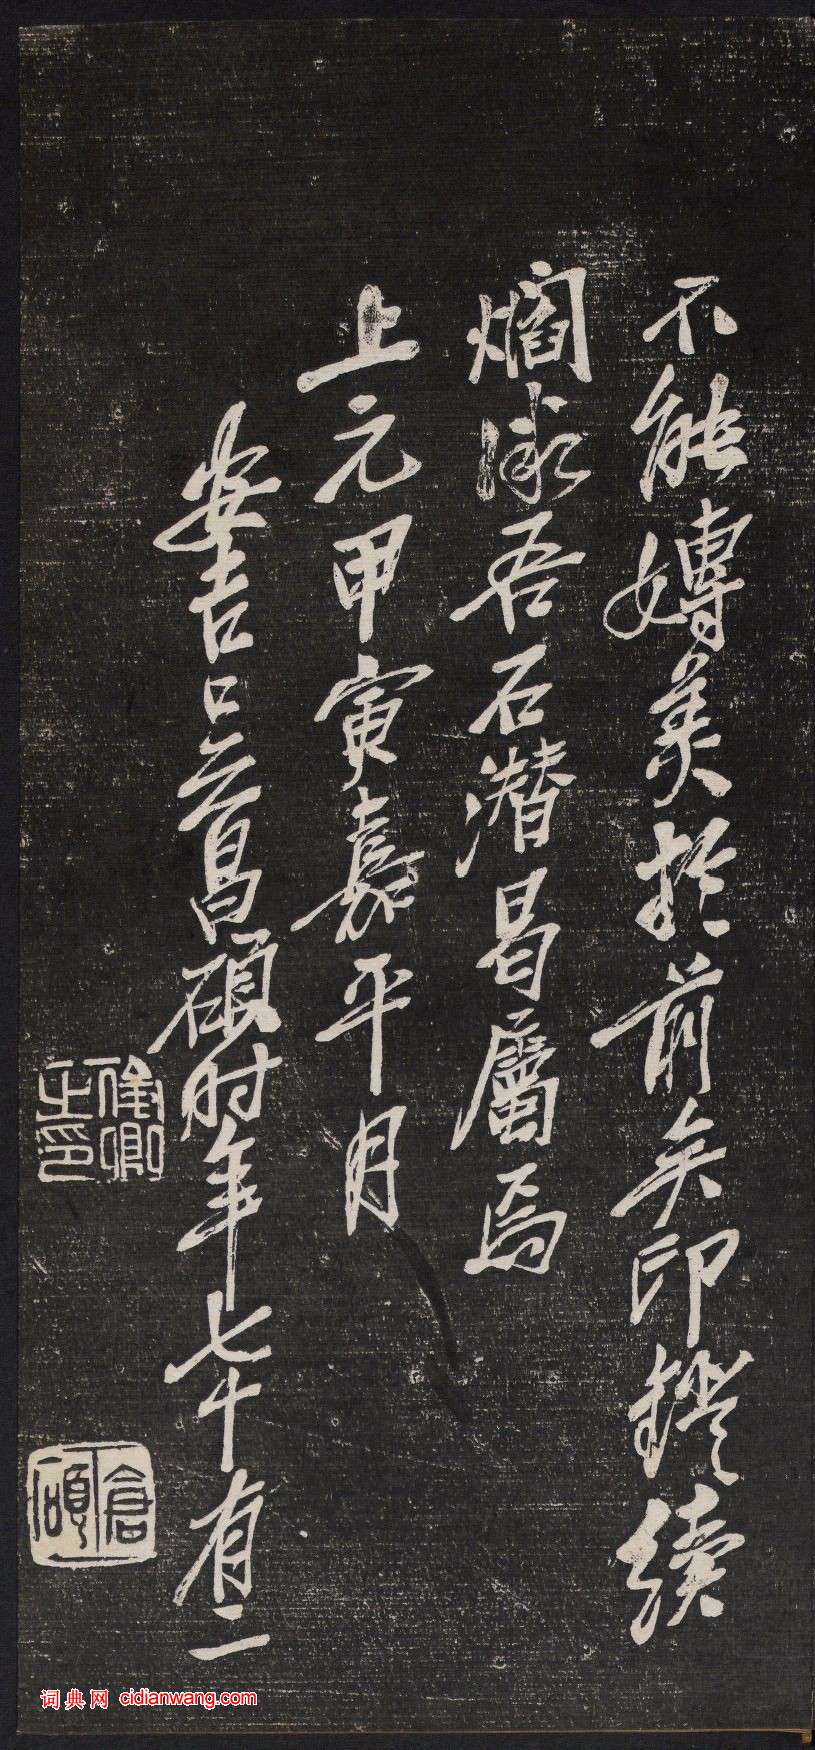 不能媾美於前矣印鐙續
爓承吾石潛曷屬焉
上元甲寅嘉平月
安吉吳昌碩时年七十有二
俊卿之印
倉碩
词典网 cidianwang.com